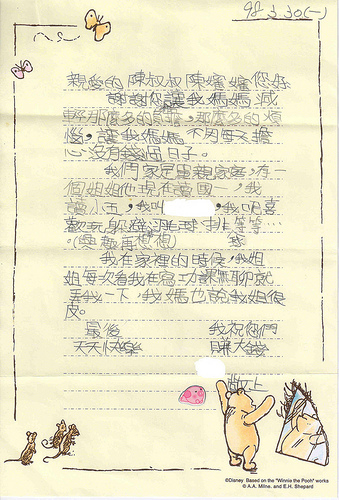 98.3.30(一)
親愛的陳叔叔陳嬸嬸您好
謝謝你讓我媽媽減
輕那麼多的負擔,那麼多的煩
惱,讓我媽媽不用每天擔
心沒有錢過日子。
我們家是單親家庭,有一
個姐姐他現在讀國一,我
讀小五,我叫,我呢喜
歡玩躲避球排等等…
我在家裡的時候,我姐
姐每次看我在寫功課無聊就
弄我一下,我媽也說我姐很
皮。
最後 我祝您們
天天快樂 賺大錢
敬上
©Disney Based on the "Winnie the Pooh" works
© A.A. Milne. and E.H. Shepard